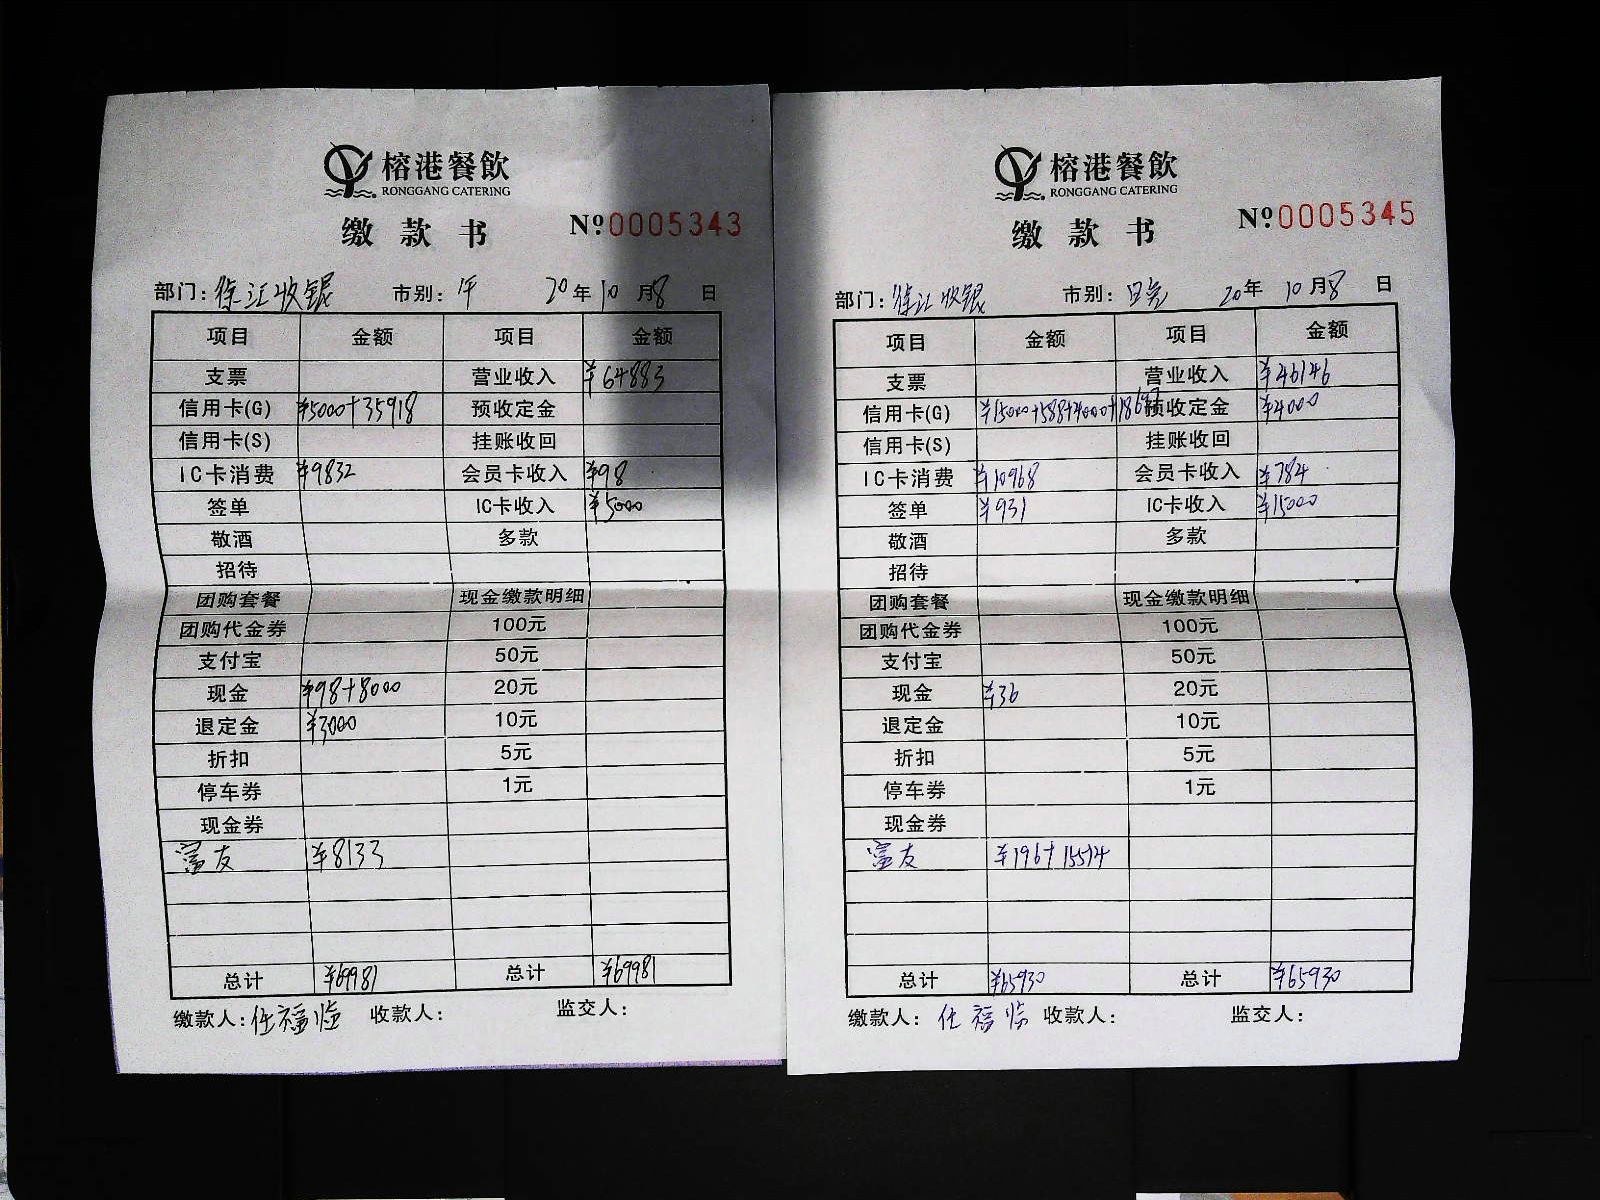 榕港餐飲
RONGGANG CATERING
缴款书 Nº0005343
部门:徐汇收银 市别:午 20年10月8日
项目 金额 项目 金额
支票 营业收入 ¥64883
信用卡(G) ¥5000+35918 预收定金
信用卡(S) 挂账收回
IC卡消费 ¥9832 会员卡收入 ¥98
签单 IC卡收入 ¥5000
敬酒 多款
招待
团购套餐 现金缴款明细
团购代金券 100元
支付宝 50元
现金 ¥98+8000 20元
退定金 ¥3000 10元
折扣 5元
停车券 1元
现金券
富友 ¥8133
总计 ¥69981 总计 ¥69981
缴款人:任福临 收款人: 监交人:
榕港餐飲
RONGGANG CATERING
缴款书 Nº0005345
部门:徐汇收银 市别: 20年10月8日
项目 金额 项目 金额
支票 营业收入 ¥46146
信用卡(G) ¥15000+588+4000+18697 预收定金 ¥4000
信用卡(S) 挂账收回
IC卡消费 ¥10968 会员卡收入 ¥784
签单 ¥931 IC卡收入 ¥15000
敬酒 多款
招待
团购套餐 现金缴款明细
团购代金券 100元
支付宝 50元
现金 ¥36 20元
退定金 10元
折扣 5元
停车券 1元
现金券
富友 ¥196+15514
总计 ¥65930 总计 ¥65930
缴款人:任福临 收款人: 监交人: